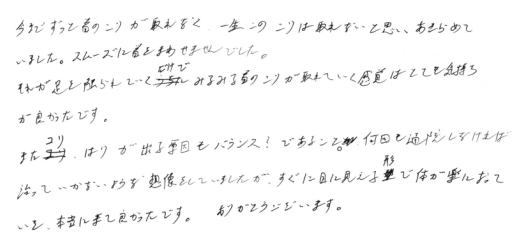 今までずっと首のこりが取れなく、一生このこりは取れないと思い、あきらめて
いました。スムーズに首をまわせませんでした。
それが足を触られていくだけでみるみる首のこりが取れていく感覚はとても気持ち
が良かったです。
またコリ、はりが出る原因もバランス!であること。何回も通院しなければ
治っていかないような想像をしていましたが、すぐに目に見える形で体が楽になって
いき、本当に来て良かったです。ありがとうございます。